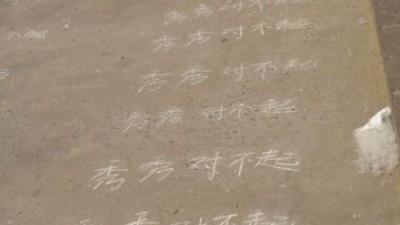 秀秀对不起
秀秀对不起
秀秀对不起
秀秀对不起
秀秀对不起
秀对不起